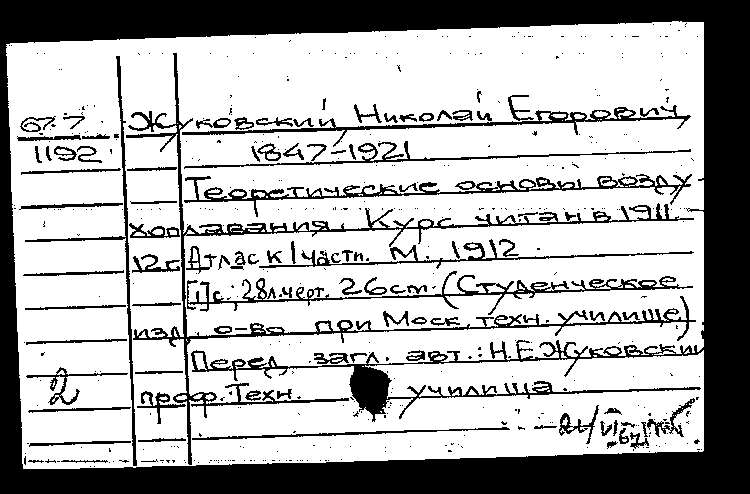 67.7 Жуковский Николай Егорович,
1192 1847-1921
Теоретические основы возду-
хоплавания. Курс читан в 1911-
12 г. Атлас к I части. М., 1912.
[1] с.; 28 л. черт. 26 cm. (Студенческое
изд. о-во при Моск. техн. училище).
Перед загл. авт.: Н.Е.Жуковский
2 проф. Техн. училища.